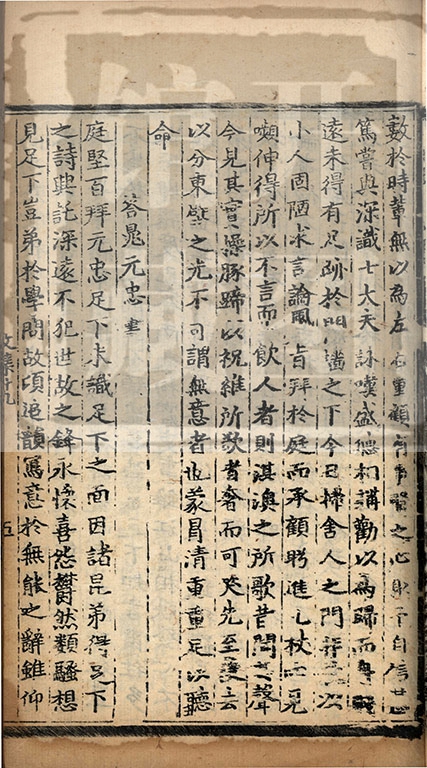 敦於時輩無以為左右重顧有事賢之心
篤嘗與深識士大夫詠嘆盛德相講勸以為歸而
遠未得有足跡於門墻之下今日掃舍人之門
小人固陋求言論風旨拜於庭而承顧眄進之杖而見
嚬伸得所以不言而飲人者則淇澳之所歌昔聞其聲
今見其實操豚蹄以祝維所欲者奢而可笑先至雙云
以分東壁之光不可謂無意者也蒙冒清重重足以聽
命
答晁元忠書
庭堅百拜元忠足下未識足下之面因諸昆弟得足下
之詩興託深遠不犯世故之鋒永懷喜怨鬱然類騷想
見足下豈弟於學問故項追韻寫意於無能之辭雖仰
文集十九
五